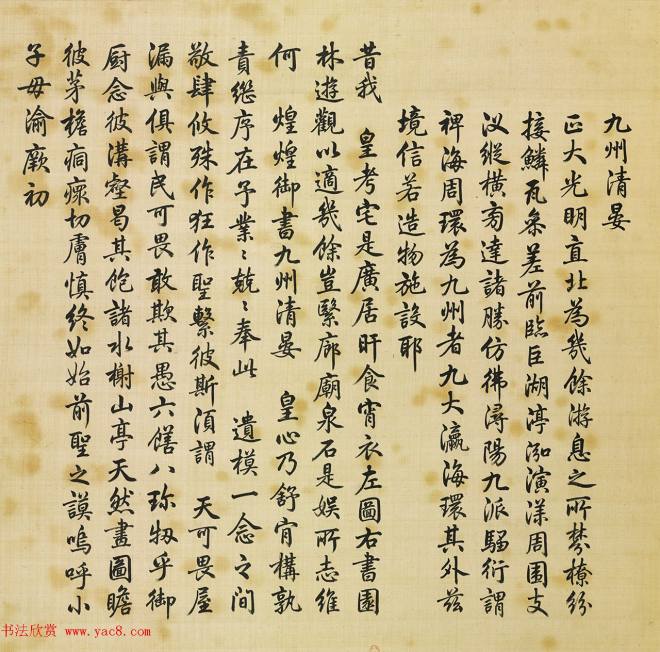 九州清晏
正大光明直北為幾餘游息之所棼橑紛
接鱗瓦參差前臨巨湖渟泓演漾周圍支
汊縱橫旁達諸勝仿彿潯陽九派騶衍謂
裨海周環為九州者九大瀛海環其外兹
境信若造物施設耶
昔我 皇考宅是廣居旰食宵衣左圖右書園
林遊觀以適幾餘豈繄廊廟泉石是娛所志維
何 煌煌御書九州清晏 皇心乃舒肯構孰
責繼序在予業〻兢〻奉此 遺模一念之間
敬肆攸殊作狂作聖繫彼斯須謂 天可畏屋
漏與俱謂民可畏敢欺其愚六饍八珍牣乎御
厨念彼溝壑曷其飽諸水榭山亭天然畫圖瞻
彼茅檐痌瘝切膚慎終如始前聖之謨嗚呼小
子毋渝厥初
书法欣赏 www.yac8.com